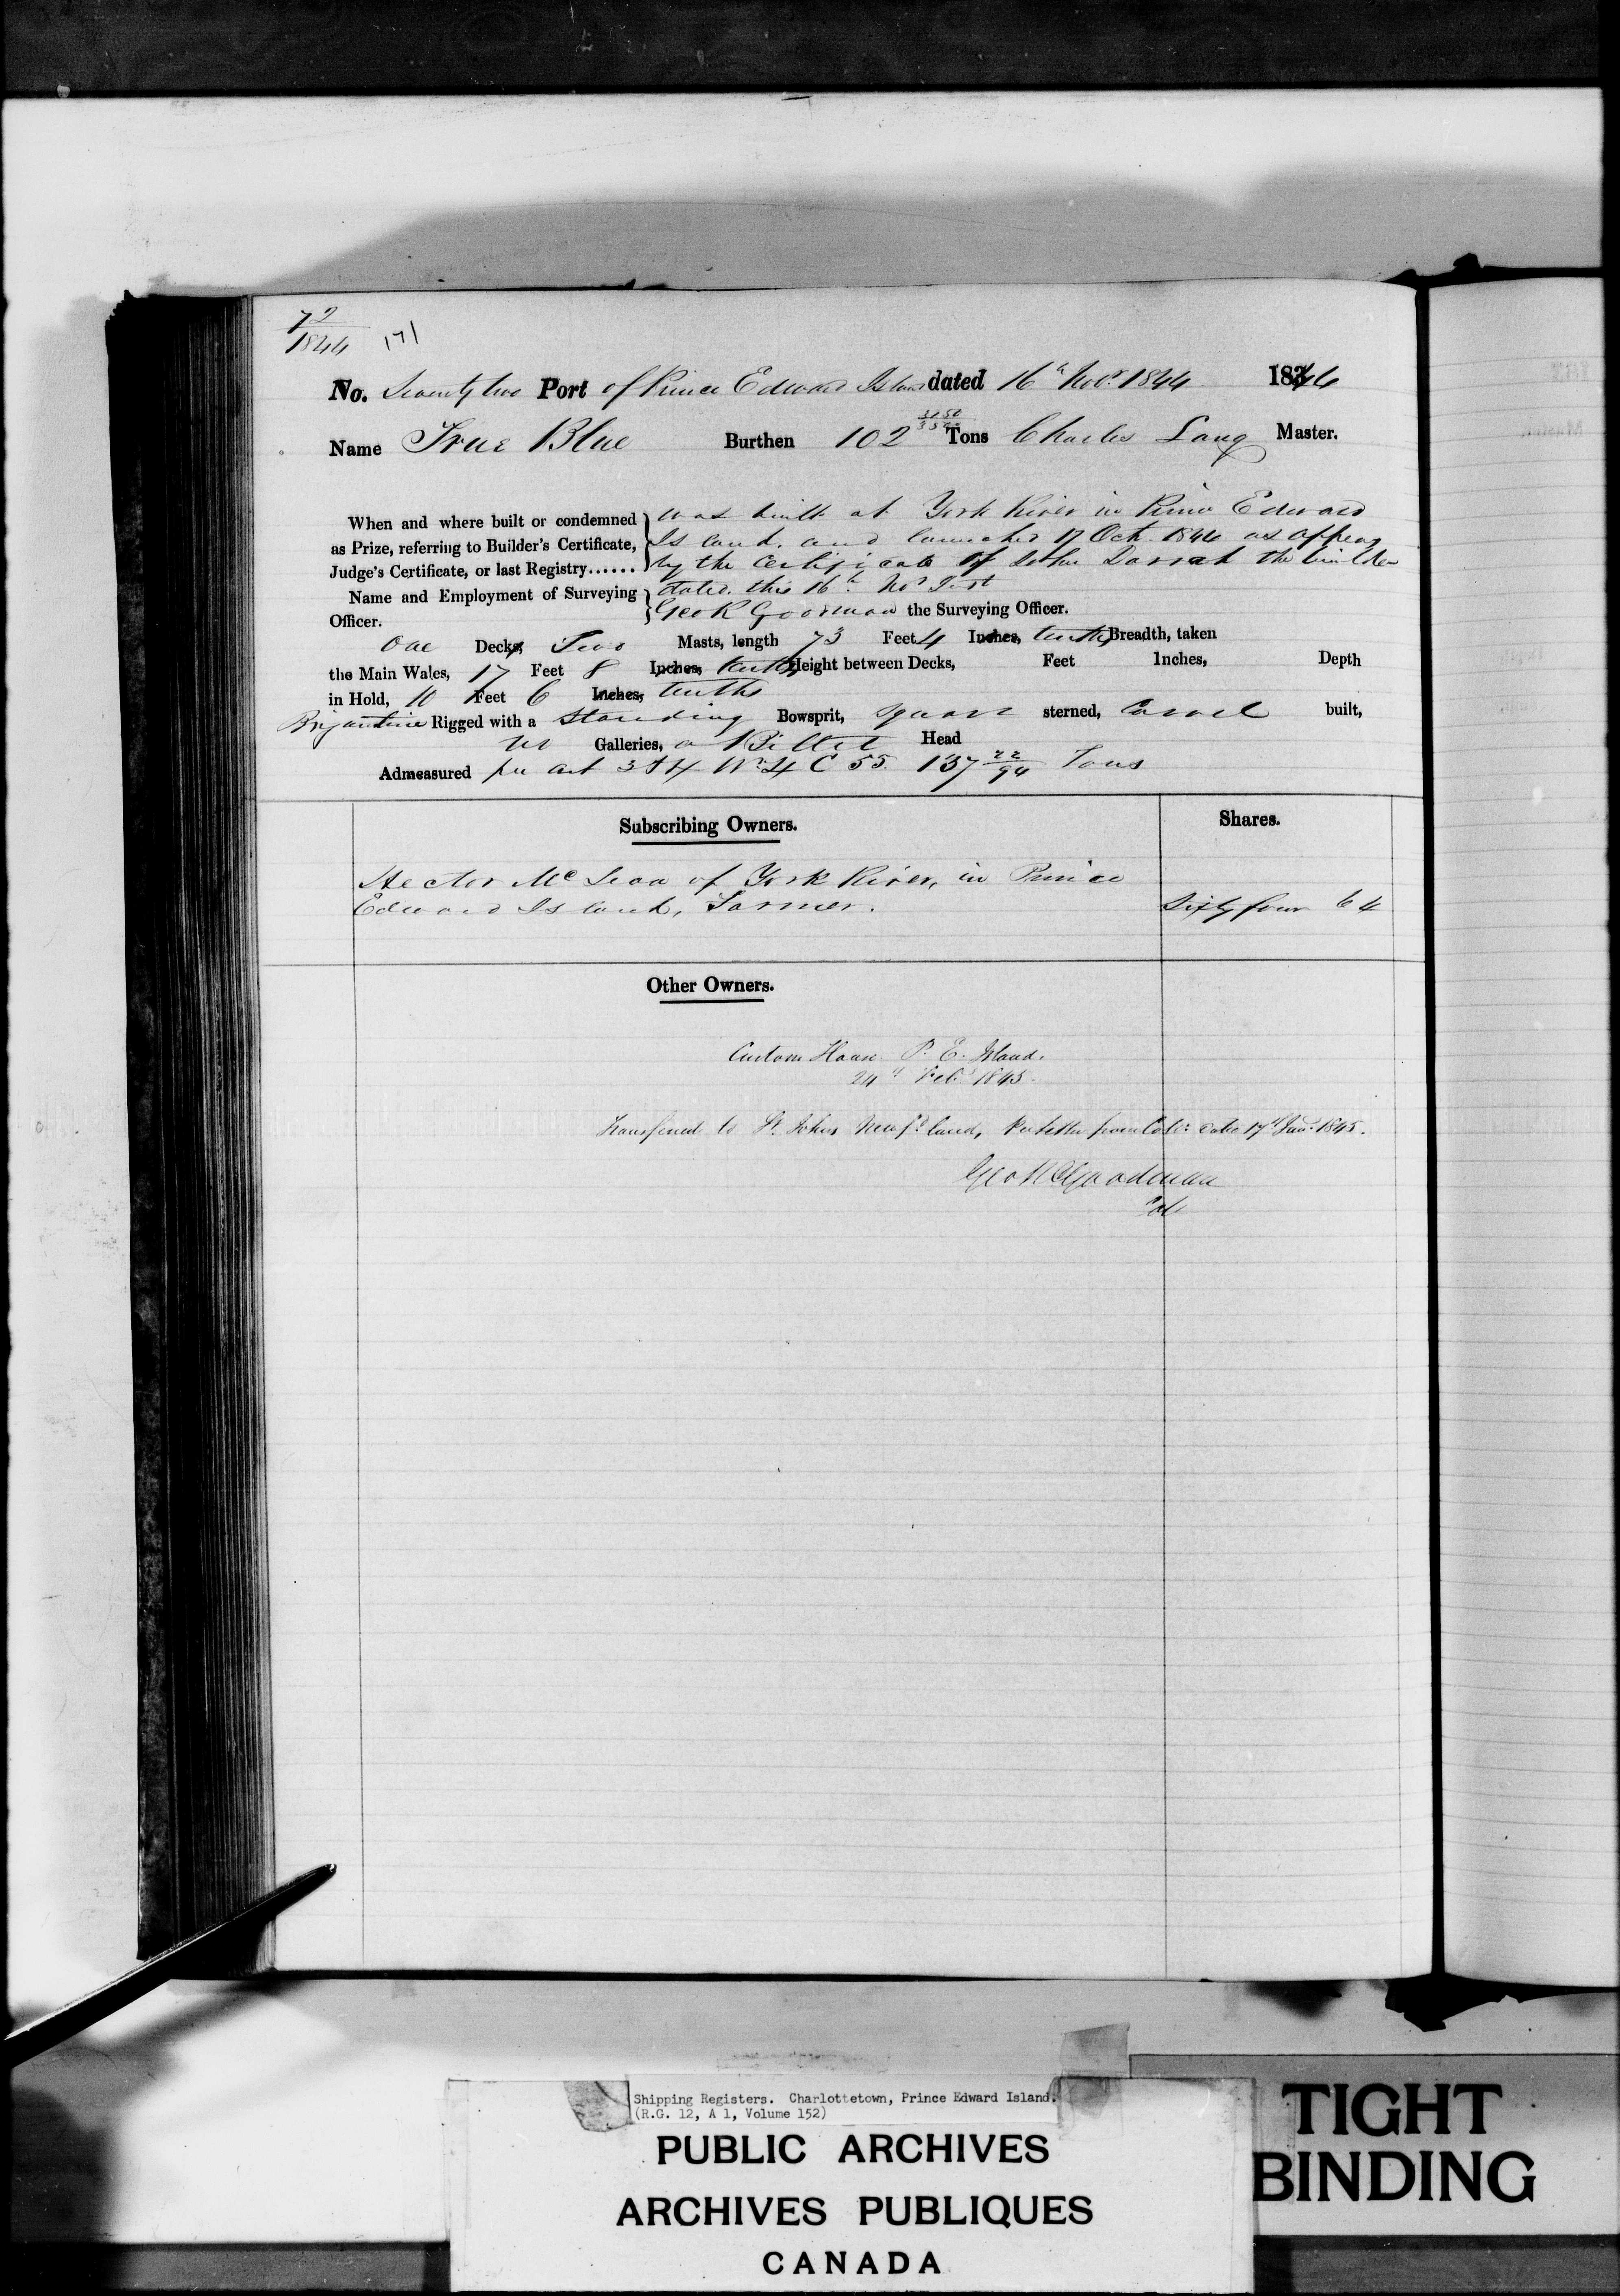 72
1844
171
No. Seventy two Port of Prince Edward Island dated 16th Novr. 1844 1844
Name True Blue Burthen 102 Tons Charles Lang Master.
When and where built or condemned was built at York River in Prince Edward
as Prize, referring to Builder's Certificate, Island, and launched 17 Oct. 1844 as appears
Judge's Certificate, or last Registry...... by the Certificate of John Darrah the builder
Name and Employment of Surveying dated this 16th Nor Inst
Officer. Geo R Goodman the Surveying Officer.
One Decks, Two Masts, length 73 Feet 4 Inches, tenths, Breadth, taken
the Main Wales, 17 Feet 8 Inches, tenths, Height between Decks, Feet Inches, Depth
in Hold, 10 Feet 6 Inches, tenths
Brigantine Rigged with a Standing Bowsprit, Square sterned, Carvel built,
no Galleries, a Billet Head
Admeasured per act 3 & 4 Wm. 4 C 55. 137 22/94 Tons
Subscribing Owners. Shares.
Hector McLean of York River, in Prince
Edward Island, Farmer. Sixty four 64
Other Owners.
Custom House P. E. Island.
24th Feby 1845.
Transferred to St. Johns Newfd. land, Per letter from Coll: date 17th Jany. 1845.
Geo R Goodman
Col
Shipping Registers. Charlottetown, Prince Edward Island.
(R.G. 12, A 1, Volume 152)
PUBLIC ARCHIVES
ARCHIVES PUBLIQUES
CANADA
TIGHT
BINDING